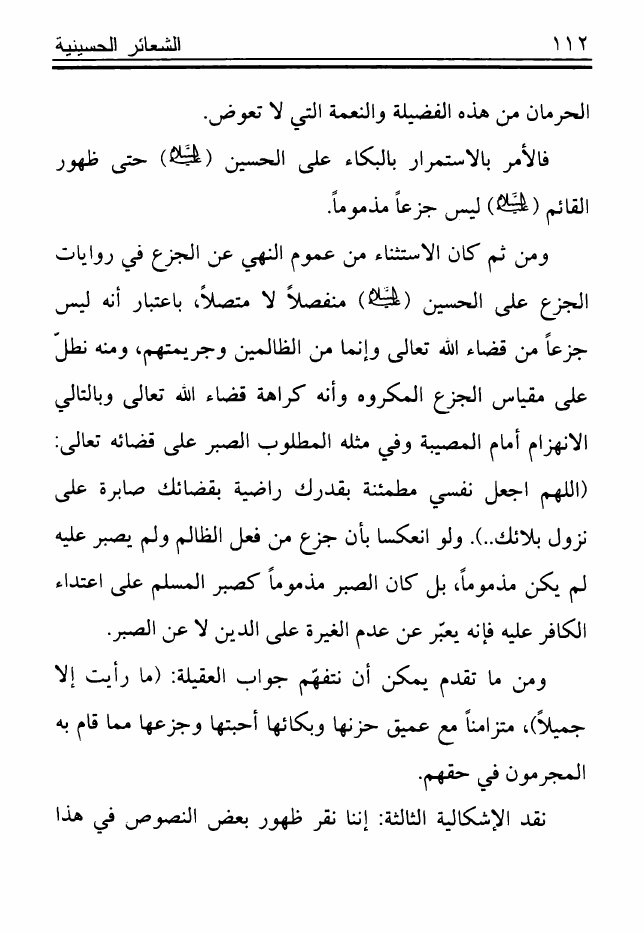 ١١٢ الشعائر الحسينية
الحرمان من هذه الفضيلة والنعمة التي لا تعوض.
فالأمر بالاستمرار بالبكاء على الحسين (عليه السلام) حتى ظهور
القائم (عليه السلام) ليس جزعاً مذموماً.
ومن ثم كان الاستثناء من عموم النهي عن الجزع في روايات
الجزع على الحسين (عليه السلام) منفصلاً لا متصلاً، باعتبار أنه ليس
جزعاً من قضاء الله تعالى وإنما من الظالمين وجريمتهم، ومنه نطلّ
على مقياس الجزع المكروه وأنه كراهة قضاء الله تعالى وبالتالي
الانهزام أمام المصيبة وفي مثله المطلوب الصبر على قضائه تعالى:
(اللهم اجعل نفسي مطمئنة بقدرك راضية بقضائك صابرة على
نزول بلائك..). ولو انعكسا بأن جزع من فعل الظالم ولم يصبر عليه
لم يكن مذموماً، بل كان الصبر مذموماً كصبر المسلم على اعتداء
الكافر عليه فإنه يعبّر عن عدم الغيرة على الدين لا عن الصبر.
ومن ما تقدم يمكن أن نتفهّم جواب العقيلة: (ما رأيت إلا
جميلاً)، متزامناً مع عميق حزنها وبكائها أحبتها وجزعها مما قام به
المجرمون في حقهم.
نقد الإشكالية الثالثة: إننا نقر ظهور بعض النصوص في هذا